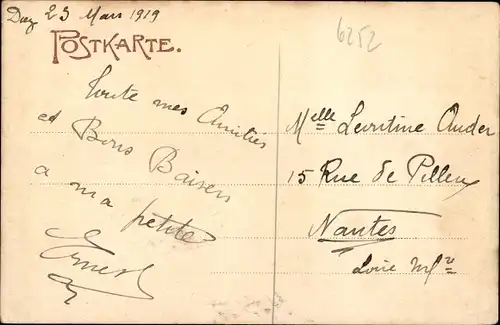 23 Mars 1919
6252
POSTKARTE.
Toute mes Amitiés
et Bons Baisers
a ma petite
Ernest
Melle Léontine
15 Rue de
Nantes
Loire Infre